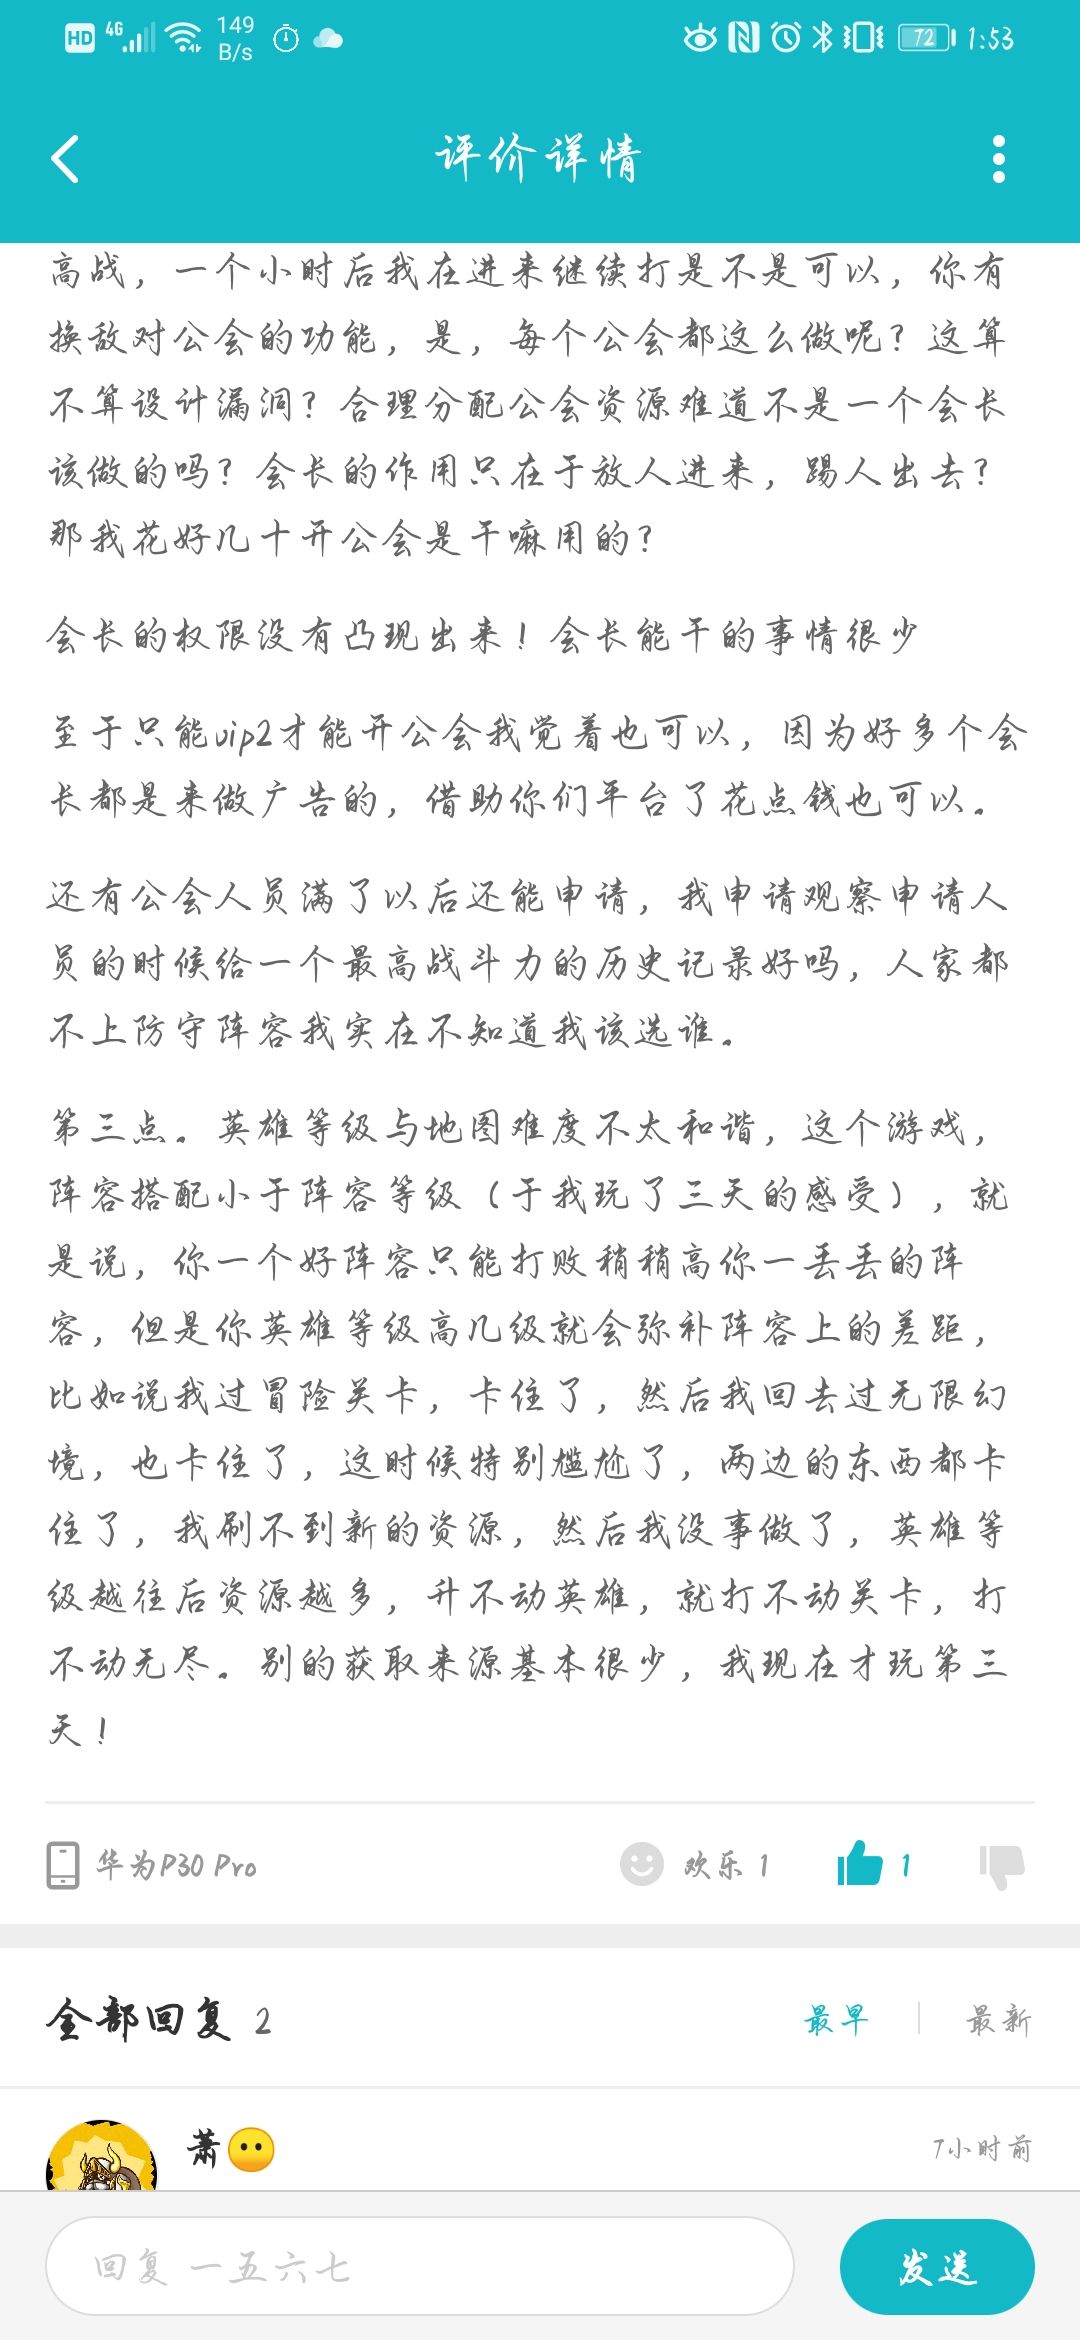 HD 4G 149 B/s 72 1:53
评价详情
高战，一个小时后我在进来继续打是不是可以，你有
换敌对公会的功能，是，每个公会都这么做呢？这算
不算设计漏洞？合理分配公会资源难道不是一个会长
该做的吗？会长的作用只在于放人进来，踢人出去？
那我花好几十开公会是干嘛用的？
会长的权限没有凸现出来！会长能干的事情很少
至于只能vip2才能开公会我觉着也可以，因为好多个会
长都是来做广告的，借助你们平台了花点钱也可以。
还有公会人员满了以后还能申请，我申请观察申请人
员的时候给一个最高战斗力的历史记录好吗，人家都
不上防守阵容我实在不知道我该选谁。
第三点。英雄等级与地图难度不太和谐，这个游戏，
阵容搭配小于阵容等级（于我玩了三天的感受），就
是说，你一个好阵容只能打败稍稍高你一丢丢的阵
容，但是你英雄等级高几级就会弥补阵容上的差距，
比如说我过冒险关卡，卡住了，然后我回去过无限幻
境，也卡住了，这时候特别尴尬了，两边的东西都卡
住了，我刷不到新的资源，然后我没事做了，英雄等
级越往后资源越多，升不动英雄，就打不动关卡，打
不动无尽。别的获取来源基本很少，我现在才玩第三
天！
华为P30 Pro 欢乐 1 1
全部回复 2 最早 最新
萧 7小时前
回复 一五六七 发送